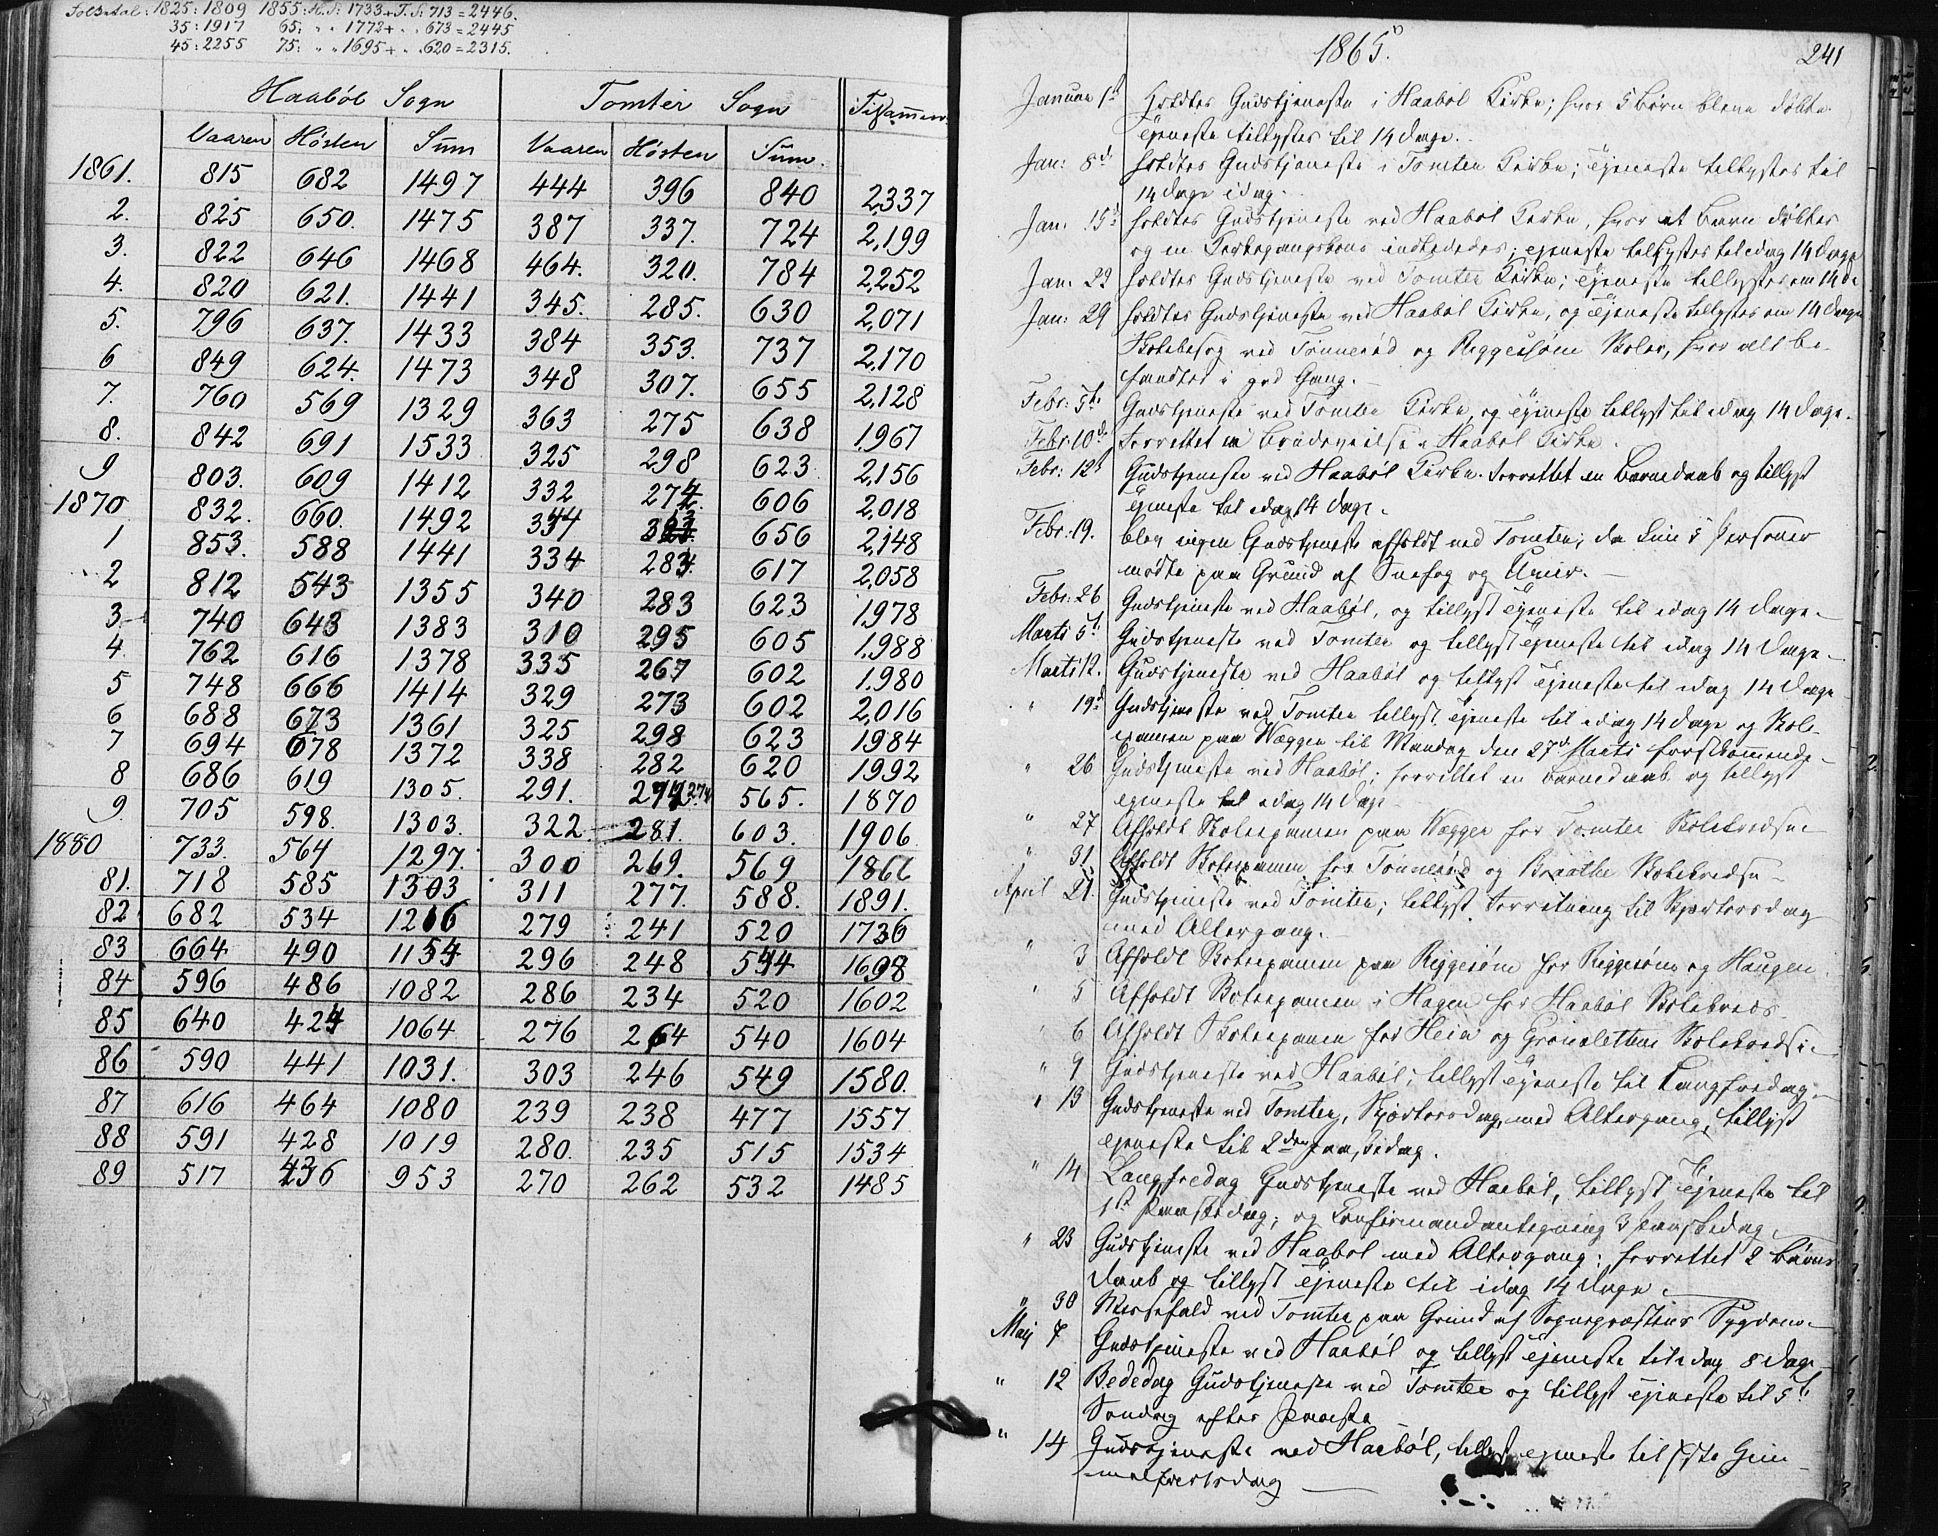 Folketal: 1825: 1809 1855: H.S: 1733 + T.S: 713 = 2446.
35: 1917 65: " " 1772 + " " 673 = 2445
45: 2255 75: " " 1695 + " " 620 = 2315.
Haabøl Sogn Tomter Sogn Tilsammen
Vaaren Høsten Sum Vaaren Høsten Sum.
1861. 815 682 1497 444 396 840 2,337
2. 825 650. 1475 387 337. 724 2,199
3. 822 646 1468 464. 320. 784 2,252
4. 820 621. 1441 345. 285. 630 2,071
5. 796 637. 1433 384 353. 737 2,170
6 849 624. 1473 348 307. 655 2,128
7. 760 569 1329 363 275 638 1,967
8. 842 691 1533 325 298 623 2,156
9 803. 609 1412 332 274 606 2,018
1870. 832. 660. 1492 334 323 656 2,148
1 853. 588 1441 334 283. 617 2,058
2 812 543 1355 340 283 623 1,978
3 740 643 1383 310 295 605 1,988
4. 762 616 1378 335 267 602 1,980
5 748 666 1414 329 273 602 2,016
6 688 673 1361 325 298 623 1984
7 694 678 1372 338 282 620 1992
8 686 619 1305. 291. 274 274 565. 1870
9. 705 598. 1303. 322 281. 603. 1906
1880 733. 564 1297. 300 269. 569 1866
81. 718 585 1303 311 277. 588. 1891.
82 682 534 1216 279 241 520 1736
83 664 490 1154 296 248 544 1698
84 596 486 1082 286 234 520 1602
85 640 424 1064 276 264 540 1604
86 590 441 1031. 303 246 549 1580.
87 616 464 1080 239 238 477 1557
88 591 428 1019 280. 235 515 1534
89 517 436 953 270 262 532 1485
1865. 241
Januar 1st Holdtes Gudstjeneste i Haabøl Kirke; hvor 5 Børn bleve døbte.
Tjeneste tillystes til 14 Dage.
Jan: 8d holdtes Gudstjeneste i Tomter Kirke; Tjeneste tillystes til
14 Dage idag.
Jan: 15d holdtes Gudstjeneste ved Haabøl Kirke, hvor et Barn døbtes
og en Kirkegangskone indlededes; Tjeneste tillystes til idag 14 Dage
Jan: 22 holdtes Gudstjeneste ved Tomter Kirke; Tjeneste tillystes om 14 D.
Jan: 29 holdtes Gudstjeneste ved Haabøl Kirke, og Tjeneste tillystes om 14 Dage
Skolebesøg ved Tønnerød og Riggesøm Skoler, hvor alt be-
fandtes i god Gang.
Febr: 5te Gudstjeneste ved Tomter Kirke, og Tjeneste tillyst til idag 14 Dage.
Febr: 10de forrettet en Brudevielse i Haabøl Kirke.
Febr: 12t Gudstjeneste ved Haabøl Kirke. forrettet en Barnedaab og tillyst
Tjeneste til idag 14 Dage.
Febr: 19. blev ingen Gudstjeneste afholdt ved Tomter, da kun 5 Personer
mødte paa Grund af Snefog og Uveir.
Febr: 26 Gudstjeneste ved Haabøl, og tillyst Tjeneste til idag 14 Dage.
Marts 5t Gudstjeneste ved Tomter og tillyst Tjeneste til idag 14 Dage
Marts 12. Gudstjeneste ved Haabøl og tillyst Tjeneste til idag 14 Dage
" 19d Gudstjeneste ved Tomter tillyst Tjeneste til idag 14 Dage og Skole-
examen paa Vægger til Mandag den 27d Marts førstkommende
" 26 Gudstjeneste ved Haabøl; forrettet en Barnedaab og tillyst
Tjeneste til idag 14 Dage
" 27 Afholdt Skoleexamen paa Vægger for Tomter Skolekredse
" 31. Afholdt Skoleexamen for Tønnerød og Braathe Skolekredse
April 2 Gudstjeneste ved Tomter; tillyst Forretning til Skjærtorsdag
med Altergang.
" 3 Afholdt Skoleexamen paa Riggesøm for Riggesøm og Haugen
" 5 Afholdt Skoleexamen i Hagen for Haabøl Skolekreds
" 6 Afholdt Skoleexamen for Heier og Grønsletten Skolekredse
" 9 Gudstjeneste ved Haabøl; tillyst Tjeneste til Langfredag
" 13 Gudstjeneste ved Tomter, Skjærtorsdag, med Altergang, tillyst
Tjeneste til 2den Paaskedag.
" 14 Langfredag Gudstjeneste ved Haabøl, tillyst Tjeneste til
1ste Paaskedag, og Confirmandantegning 3 Paaskedag
" 23 Gudstjeneste ved Haabøl med Altergang; forrettet 2 Barne-
daab og tillyst Tjeneste til idag 14 Dage.
" 30 Messefald ved Tomter paa Grund af Sognepræstens Sygdom
Maj 7 Gudstjeneste ved Haabøl og tillyst Tjeneste til idag 8 Dage
" 12 Bededag Gudstjeneste ved Tomter og tillyst Tjeneste til 5te
Søndag efter Paaske
" 14 Gudstjeneste ved Haabøl, tillyst Tjeneste til Xste Him-
melfartsdag